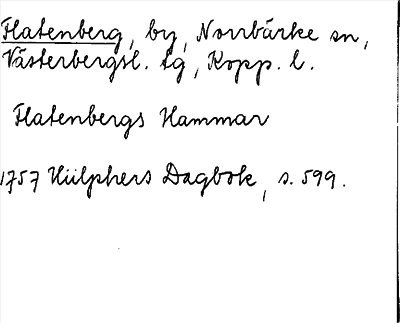 Flatenberg, by, Norrbärke sn,
Västerbergsl. tg, Kopp. l.
Flatenbergs Hammar
1757 Hülphers Dagbok, s. 599.